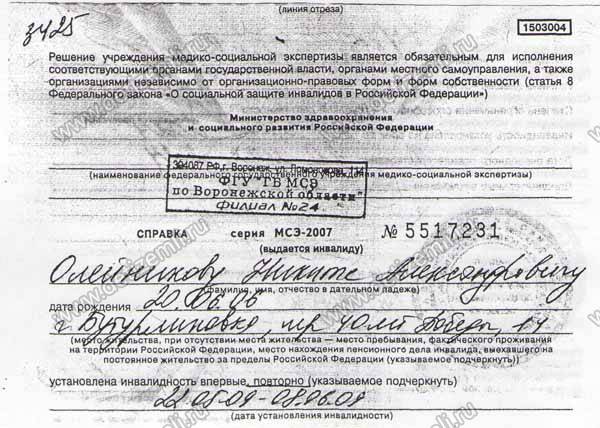 (линия отреза)
3425
1503004
Решение учреждения медико-социальной экспертизы является обязательным для исполнения
соответствующими органами государственной власти, органами местного самоуправления, а также
организациями независимо от организационно-правовых форм и форм собственности (статья 8
Федерального закона «О социальной защите инвалидов в Российской Федерации»)
Министерство здравоохранения
и социального развития Российской Федерации
394087 РФ, г. Воронеж, ул. Ломоносова, 114
(наименование федерального государственного учреждения медико-социальной экспертизы)
ФГУ "ГБ МСЭ
по Воронежской области"
филиал №24
СПРАВКА серия МСЭ-2007 № 5517231
(выдается инвалиду)
Олейникову Никите Александровичу
(фамилия, имя, отчество в дательном падеже)
дата рождения 20.06.06
г. Бутурлиновка, 40 лет Победы, 14
(место жительства, при отсутствии места жительства — место пребывания, фактического проживания
на территории Российской Федерации, место нахождения пенсионного дела инвалида, выехавшего на
постоянное жительство за пределы Российской Федерации (указываемое подчеркнуть))
установлена инвалидность впервые, повторно (указываемое подчеркнуть)
22.05.09-08.06.09
(дата установления инвалидности)